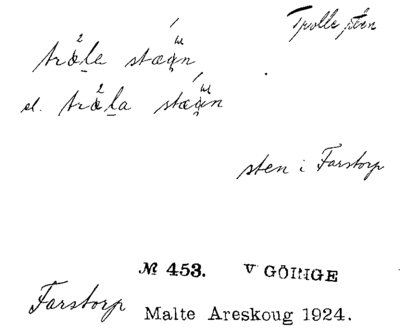 Trolle sten
tröla stægn
el. tröla stægn
sten i Farstorp
№ 453. V GÖINGE
Farstorp Malte Areskoug 1924.